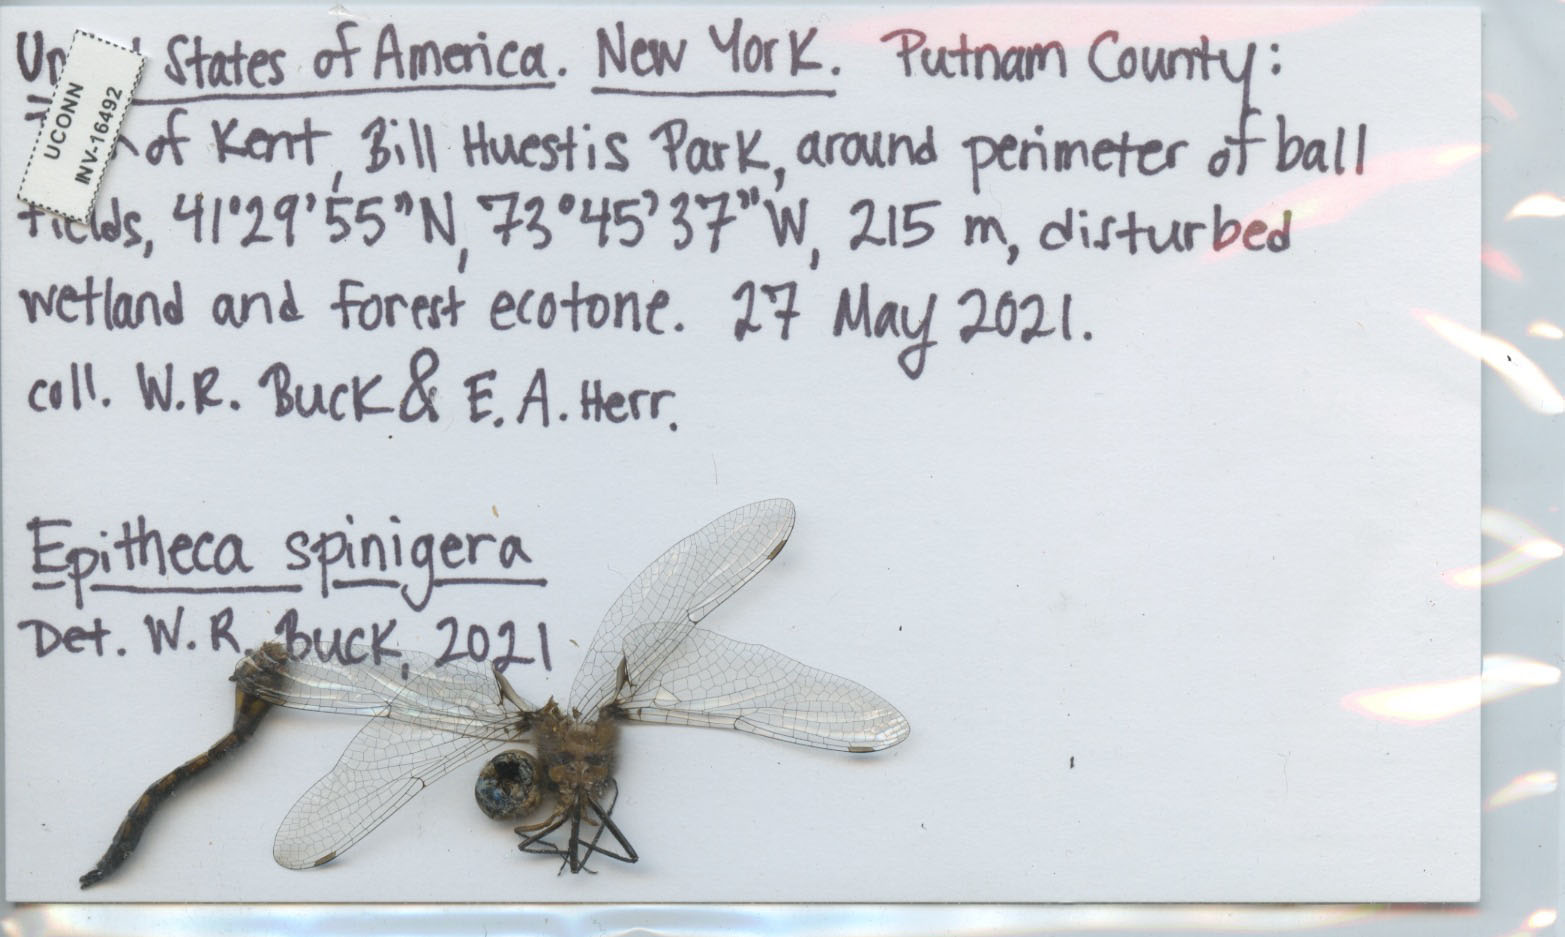 States of America. New York. Putnam County:
of Kent, Bill Huestis Park, around perimeter of ball
fields, 41°29'55"N, 73°45'37"W, 215 m, disturbed
wetland and forest ecotone. 27 May 2021.
coll. W.R. Buck & E. A. Herr.
UCONN
INV-16492
Epitheca spinigera
Det. W. R. Buck, 2021